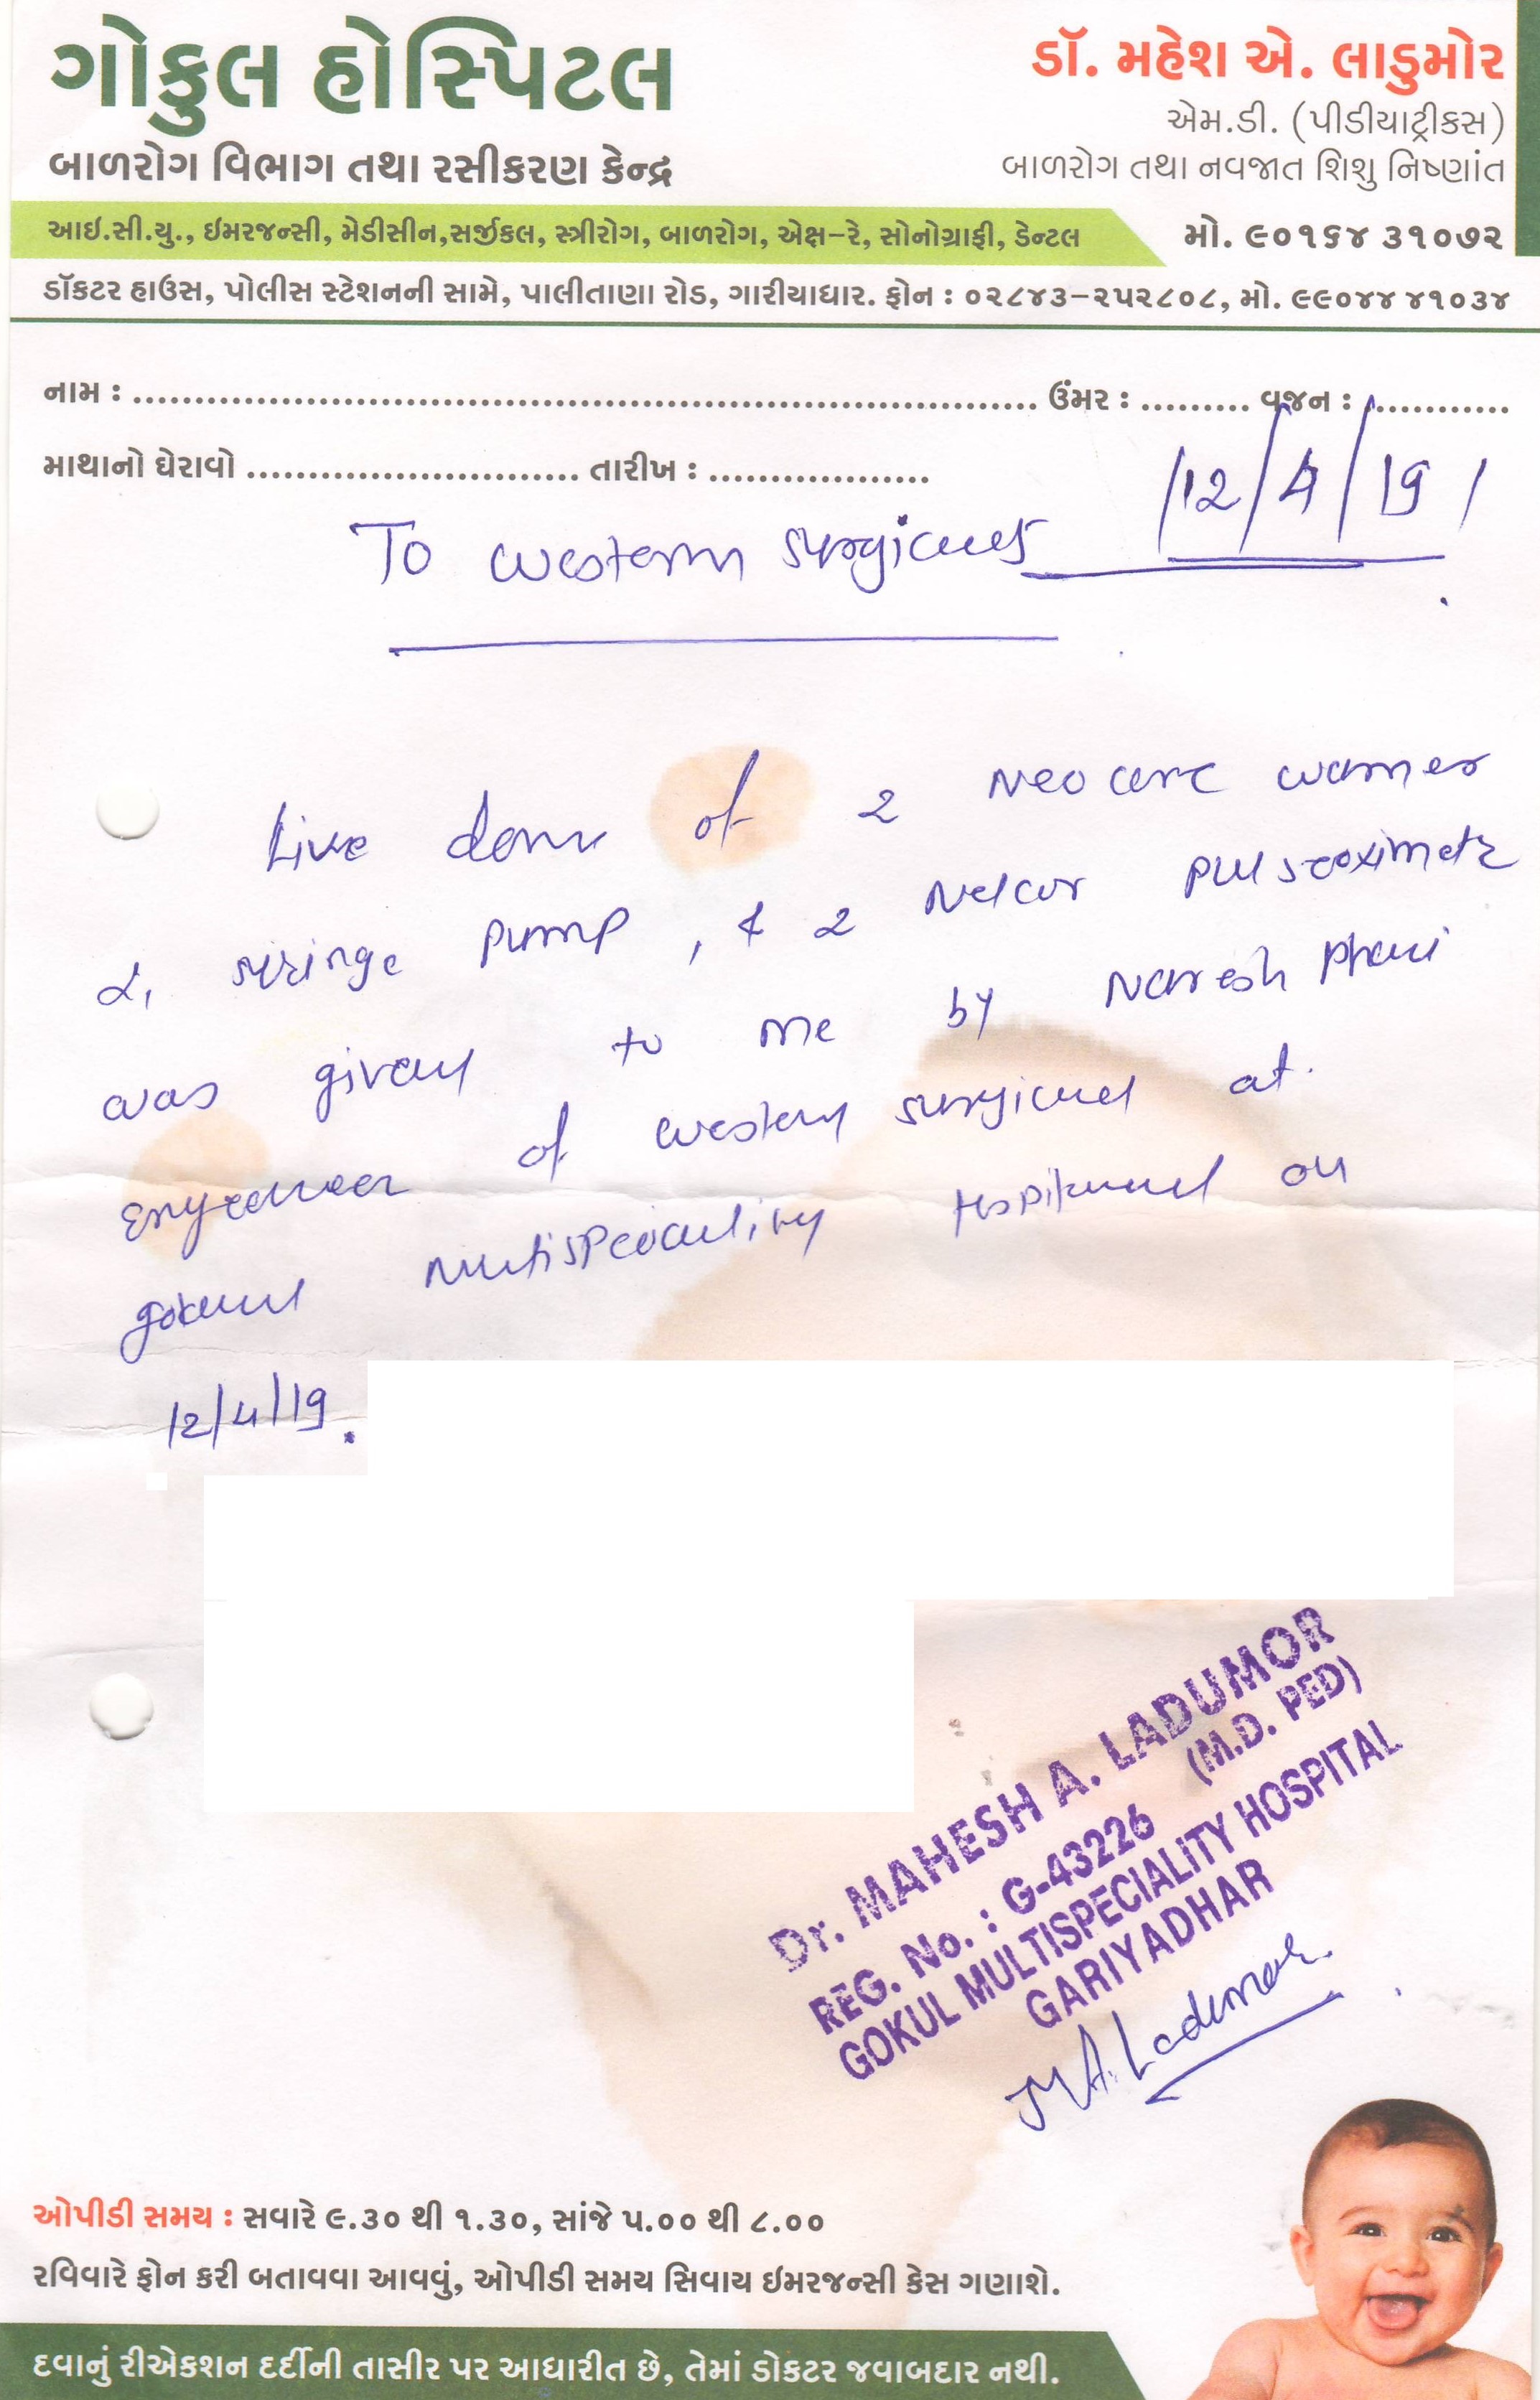 ગોકુલ હોસ્પિટલ
બાળરોગ વિભાગ તથા રસીકરણ કેન્દ્ર
ડૉ. મહેશ એ. લાડુમોર
એમ.ડી. (પીડીયાટ્રીકસ)
બાળરોગ તથા નવજાત શિશુ નિષ્ણાંત
આઇ.સી.યુ., ઇમરજન્સી, મેડીસીન,સર્જીકલ, સ્ત્રીરોગ, બાળરોગ, એક્ષ-રે, સોનોગ્રાફી, ડેન્ટલ
મો. ૯૦૧૬૪ ૩૧૦૭૨
ડૉકટર હાઉસ, પોલીસ સ્ટેશનની સામે, પાલીતાણા રોડ, ગારીયાધાર. ફોન : ૦૨૮૪૩-૨૫૨૮૦૮, મો. ૯૯૦૪૪ ૪૧૦૩૪
નામ : ........................................................................... ઉંમર : ......... વજન : ............
માથાનો ઘેરાવો ........................... તારીખ : ..................
12/4/19
To western surgicals
Live demo of 2 Neocare warmer
2, siringe pump, & 2 Nelcor pulseoximeter
was given to me by Naresh
of western surgical at
gokul Multispeciality Hospital on
12/4/19.
Dr. MAHESH A. LADUMOR
(M.D. PED)
REG. No. : G-43226
GOKUL MULTISPECIALITY HOSPITAL
GARIYADHAR
M.A. Ladumor
ઓપીડી સમય : સવારે ૯.૩૦ થી ૧.૩૦, સાંજે ૫.૦૦ થી ૮.૦૦
રવિવારે ફોન કરી બતાવવા આવવું, ઓપીડી સમય સિવાય ઇમરજન્સી કેસ ગણાશે.
દવાનું રીએકશન દર્દીની તાસીર પર આધારીત છે, તેમાં ડોકટર જવાબદાર નથી.